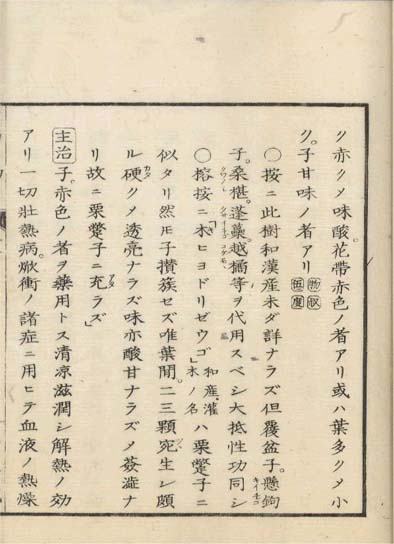 ク赤クメ味酸花帯赤色ノ者アリ或ハ葉多クメ小
ク。子甘味ノ者アリ
○按ニ此樹和漢産未ダ詳ナラズ但覆盆子。懸鉤
子。桑椹。蓬蘽。越橘等ヲ代用スベシ大抵性功同シ
○榕按ニ木ヒヨドリゼウゴ 和産灌木ノ名 ハ栗蘡子ニ
似タリ然モ子攅簇セズ唯葉間。二三顆宛生シ頗
ル硬クメ透亮ナラズ味亦酸甘ナラズメ
リ故ニ栗蘡子ニ充ラズ」
主治 子。赤色ノ者ヲ藥用トス清凉滋潤シ解熱ノ効
アリ一切壮熱病。焮衝ノ諸症ニ用ヒテ血液ノ熱燥